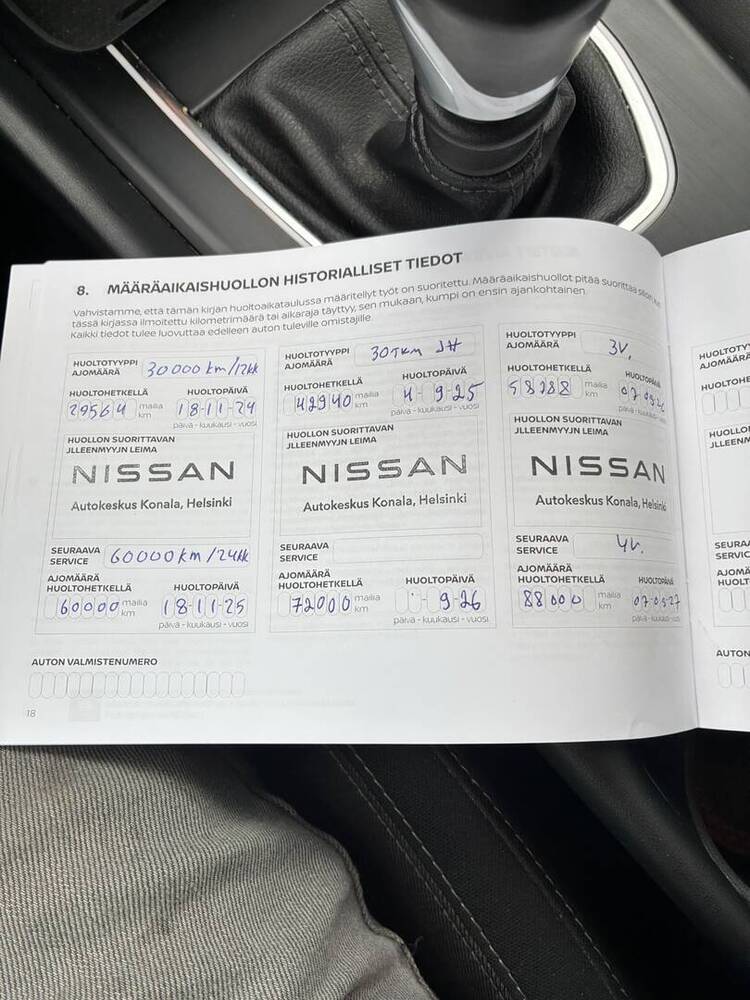 8. MÄÄRÄAIKAISHUOLLON HISTORIALLISET TIEDOT
Vahvistamme, että tämän kirjan huoltoaikataulussa määritellyt työt on suoritettu. Määräaikaishuollot pitää suorittaa
tässä kirjassa ilmoitettu kilometrimäärä tai aikaraja täyttyy, sen mukaan, kumpi on ensin ajankohtainen.
Kaikki tiedot tulee luovuttaa edelleen auton tuleville omistajille.
HUOLTOTYYPPI
AJOMÄÄRÄ
30000 km/12kk
HUOLTOHETKELLÄ
29564
mailia
km
HUOLTOPÄIVÄ
18-11-24
päivä - kuukausi - vuosi
HUOLLON SUORITTAVAN
JLLEENMYYJN LEIMA
NISSAN
Autokeskus Konala, Helsinki
SEURAAVA
SERVICE
60000km/24kk
AJOMÄÄRÄ
HUOLTOHETKELLÄ
60000
mailia
km
HUOLTOPÄIVÄ
18-11-25
päivä - kuukausi - vuosi
HUOLTOTYYPPI
AJOMÄÄRÄ
30TKM JH
HUOLTOHETKELLÄ
42940
mailia
km
HUOLTOPÄIVÄ
4-9-25
päivä - kuukausi - vuosi
HUOLLON SUORITTAVAN
JLLEENMYYJN LEIMA
NISSAN
Autokeskus Konala, Helsinki
SEURAAVA
SERVICE
AJOMÄÄRÄ
HUOLTOHETKELLÄ
72000
mailia
km
HUOLTOPÄIVÄ
-9-26
päivä - kuukausi - vuosi
HUOLTOTYYPPI
AJOMÄÄRÄ
3V.
HUOLTOHETKELLÄ
mailia
km
HUOLTOPÄIVÄ
päivä - kuukausi - vuosi
HUOLLON SUORITTAVAN
JLLEENMYYJN LEIMA
NISSAN
Autokeskus Konala, Helsinki
SEURAAVA
SERVICE
4V.
AJOMÄÄRÄ
HUOLTOHETKELLÄ
88000
mailia
km
HUOLTOPÄIVÄ
päivä - kuukausi - vuosi
AUTON VALMISTENUMERO
18
AUTON